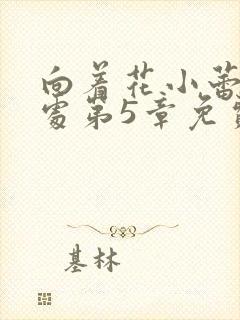 向着花小蕾
处第5章免费
基林